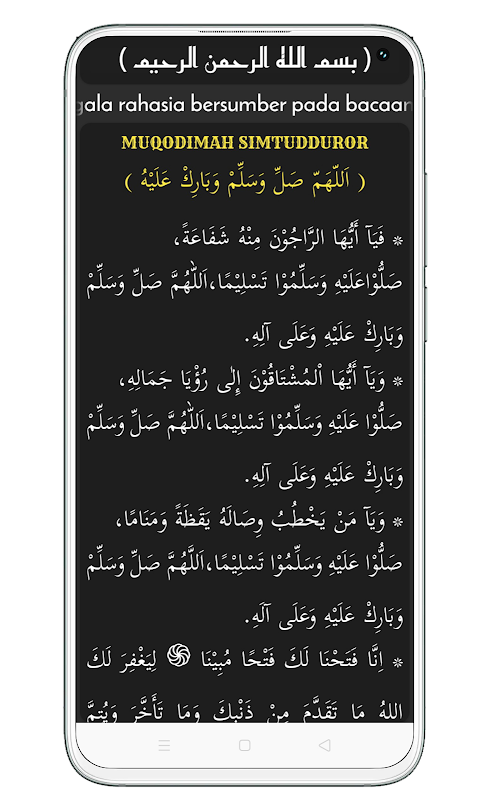 ( بسم الله الرحمن الرحيم )
gala rahasia bersumber pada bacaan
MUQODIMAH SIMTUDDUROR
( اَللّٰهُمَّ صَلِّ وَسَلِّمْ وَبَارِكْ عَلَيْهُ )
* فَيَآ أَيُّهَا الرَّاجُوْنَ مِنْهُ شَفَاعَةً،
صَلُّوْاعَلَيْهِ وَسَلِّمُوْا تَسْلِيْمًا،اَللّٰهُمَّ صَلِّ وَسَلِّمْ
وَبَارِكْ عَلَيْهِ وَعَلَى آلِهِ.
* وَيَآ أَيُّهَا اْلمُشْتَاقُوْنَ إِلٰى رُؤْيَا جَمَالِهِ،
صَلُّوْا عَلَيْهِ وَسَلِّمُوْا تَسْلِيْمًا،اَللّٰهُمَّ صَلِّ وَسَلِّمْ
وَبَارِكْ عَلَيْهِ وَعَلَى آلِهِ.
* وَيَآ مَنْ يَخْطُبُ وِصَالَهُ يَقَظَةً وَمَنَامًا،
صَلُّوْا عَلَيْهِ وَسَلِّمُوْا تَسْلِيْمًا،اَللَّهُمَّ صَلِّ وَسَلِّمْ
وَبَارِكْ عَلَيْهِ وَعَلَى آلَهِ.
* اِنَّا فَتَحْنَا لَكَ فَتْحًا مُبِيْنَا ֍ لِيَغْفِرَ لَكَ
اللهُ مَا تَقَدَّمَ مِنْ ذَنْبِكَ وَمَا تَأَخَّرَ وَيُتِمَّ